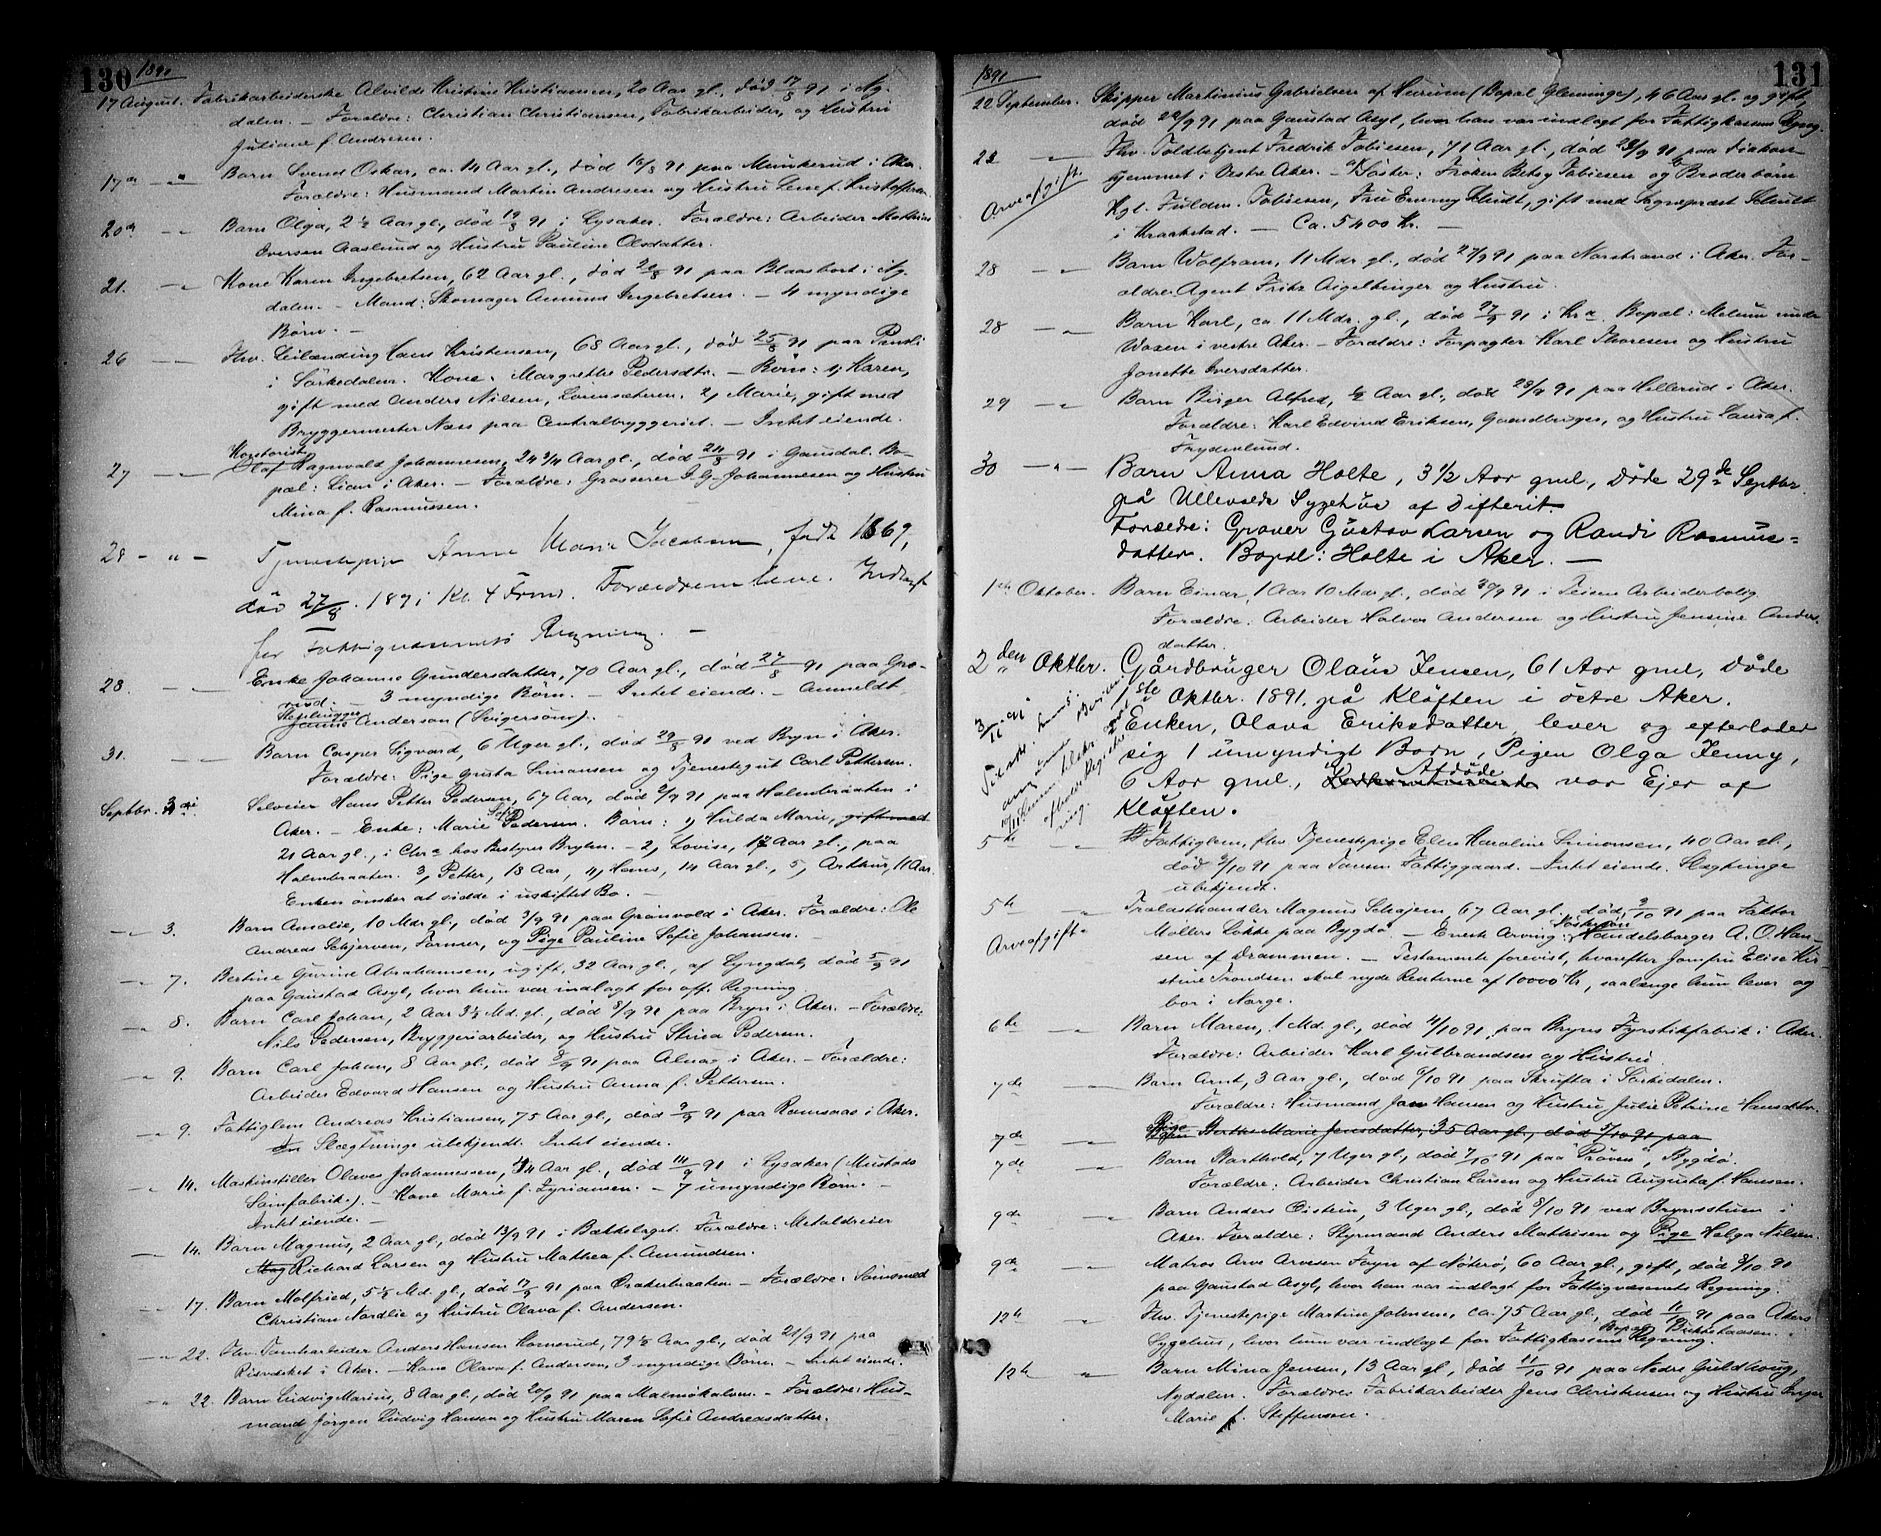 130 1891
17 August. Fabrikarbeiderske Alvilde Kristine Kristiansen, 20 Aar gl., død 17/8 91 i Ny-
dalen. – Forældre: Christian Christiansen, Fabrikarbeider, og Hustru
Juliane f. Andresen.
17de — " Barn Svend Oskar, ca. 14 Aar gl., død 16/8 91 paa Munkerud i Aker.
Forældre: Husmand Martin Andresen og Hustru Lene f. Kristoffersen.
20de — " — Barn Olga, 2 1/2 Aar gl., død 19/8 91 i Lysaker. Forældre: Arbeider Mathias
Iversen Aaslund og Hustru Pauline Olsdatter.
21. — " — Kone Karen Ingebretsen, 62 Aar gl., død 20/8 91 paa Blaasbort i Ny-
dalen. – Mand: Skomager Amund Ingebretsen. – 4 myndige
Børn. –
26 — " — Fhv. Leilænding Hans Kristensen, 68 Aar gl., død 25/8 91 paa
i Sørkedalen. Kone: Margrethe Pedersdtr. – Børn: 1, Karen,
gift med Anders Nilsen, Lørensæteren. 2, Marie, gift med
Bryggermester Næss paa Centralbryggeriet. – Intet eiende.
Kontorist
27 — " — Olaf Ragnvald Johannesen, 24 3/4 Aar gl., død 24/8 91 i Gausdal. Bo-
pæl: Lian i Aker. – Forældre: Grosserer I. G. Johannesen og Hustru
Mina f. Rasmussen.
28 — " — Tjenestepige Anne Marie Jacobsen, født 1869,
død 27/8. 1891 Kl. 4 Frmd. Forældrene leve. Indlagt
for Fattigvæsenets Regning. –
28. — " — Enke Johanne Gundersdatter, 70 Aar gl., død 27/8 91 paa Gro-
rud. 3 myndige Børn. – Intet eiende. – Anmeldt
Stenhugger Anderson (Svigersøn).
31. — " — Barn Casper Sigvard, 6 Uger gl., død 29/8 91 ved Bryn i Aker.
Forældre: Pige Gusta Simonsen og Tjenestegut Carl Pettersen.
Septbr. 3di Selveier Hans Petter Pedersen, 67 Aar, død 2/9 91 paa Holmbraaten i
Aker. – Enke: Marie Sofie Pedersen. Børn: 1, Hulda Marie, gift med
21 Aar gl., i Chra hos Bestyrer Brylen. – 2, Lovise, 17 Aar gl., paa
Holmbraaten. 3, Petter, 18 Aar, 4, Hans, 14 Aar gl., 5, Arthur, 11 Aar.
Enken ønsker at sidde i uskiftet Bo. –
— " — 3. Barn Amalie, 10 Mdr. gl., død 3/9 91 paa Grønvold i Aker. Forældre: Ole
Andreas Schjerven, Former, og Pige Pauline Sofie Johansen.
— " — 7. Bertine Gurine Abrahamsen, ugift, 32 Aar gl., af Lyngdal, død 5/9 91
paa Gaustad Asyl, hvor hun var indlagt for off. Regning.
— " 8. Barn Carl Johan, 2 Aar 3 1/2 Md. gl., død 8/9 91 paa Bryn i Aker. – Forældre:
Nils Pedersen, Bryggeriarbeider, og Hustru Stina Pedersen.
— " 9. Barn Carl Johan, 8 Aar gl., død 8/9 91 paa Alnaø i Aker. – Forældre:
Arbeider Edvard Hansen og Hustru Anna f. Pettersen.
— " 9. Fattiglem Andreas Kristiansen, 75 Aar gl., død 9/9 91 paa Romsaas i Aker.
Slægtninge ubekjendt. Intet eiende.
— " 14. Maskinstiller Olaves Johannessen, 44 Aar gl., død 14/9 91 i Lysaker (Mustads
Sømfabrik.) – Kone Marie f. Zyriansen. – 7 umyndige Børn. –
Intet eiende. –
— 14. Barn Magnus, 2 Aar gl., død 13/9 91 i Bækkelaget. Forældre: Metaldreier
Mag Richard Larsen og Hustru Mathea f. Amundsen.
— " 17. Barn Molfried, 5 1/2 Md. gl., død 17/9 91 paa Ørakerbraaten – Forældre: Sømsmed
Christian Nordlie og Hustru Olava f. Andersen.
— " 22. Fhv. Tomtearbeider Anders Hansen Homerud, 79 1/2 Aar gl., død 21/9 91 paa
Risvækket i Aker. – Kone Olava f. Andersen, 3 myndige Børn. – Intet eiende.
— " 22. Barn Ludvig Marius, 8 Aar gl., død 20/9 91 paa Malmøkalven. – Forældre: Hus-
mand Jørgen Ludvig Hansen og Hustru Maren Sofie Andreasdatter.
1891 131
22 September. Skipper Martinius Gabrielsen af Hurum (Bopæl Glemminge), 46 Aar gl. og gift,
død 22/9 91 paa Gaustad Asyl, hvor han var indlagt for Fattigkassens Regng.
23 — " Fhv. Toldbetjent Fredrik Tobiesen, 71 Aar gl., død 23/9 91 paa Diakon-
hjemmet i Vestre Aker. – Søster: Frøken Betsy Tobiesen og Broderbørn
Arveafgift.
Kgl. Fuldm. Tobiesen, Fru Emmy Schutt, gift med Sogneprest Schutt
i Kraakstad. – Ca. 5400 Kr. –
28 — " Barn Wolfram, 11 Mdr. gl., død 27/9 91 paa Norstrand i Aker. For-
ældre Agent Fritz Aigeltinger og Hustru.
28 — " Barn Karl, ca. 11 Mdr. gl., død 27/9 91 i Kra. Bopæl: Melum under
Voxen i vestre Aker. – Forældre: Forpagter Karl Thoresen og Hustru
Jonette Iversdatter.
29 — " Barn Birger Alfred, 1/2 Aar gl., død 28/9 91 paa Hellerud i Aker.
Forældre: Karl Edvind Eriksen, Gaardbruger, og Hustru Laura f.
Frydenlund.
30 — " — Barn Anna Holte, 3 1/2 Aar gml, døde 29de Septbr.
på Ullevolds Sygehus af Difterit.
Forældre: Graver Gustav Larsen og Randi Rasmus-
datter. Bopæl: Holte i Aker. –
1ste Oktober. Barn Einar, 1 Aar 10 Mdr. gl., død 30/9 91 i Teiens Arbeiderbolig
Forældre: Arbeider Halvor Andersen og Hustru Jensine Anders-
datter.
2den Oktbr. Gårdbruger Olaus Jensen, 61 Aar gml, døde
1ste Oktbr. 1891 på Kløften i østre Aker.
Enken, Olava Eriksdatter, lever og efterlader
sig 1 umyndigt Barn, Pigen Olga Jenny,
6 Aar gml, Afdøde var Ejer af
Kløften.
5te — " Fattiglem, fhv. Tjenestepige Elen Karoline Simonsen, 40 Aar gl.,
død 3/10 91 paa Tonsen Fattiggaard. – Intet eiende. Slægtninge
ubekjendt.
5te " Trælasthandler Magnus Schajem, 67 Aar gl., død 3/10 91 paa Faktor
Arveafgift. Møllers Løkke paa Bygdø. – Eneste Arving: Søstersøn Handelsborger A. O. Han-
sen af Drammen. – Testamente forevist, hvorefter Jomfru Elise Kir-
stine Trondsen skal nyde Renterne af 10000 Kr., saalænge hun lever og
bor i Norge.
6te — " Barn Maren, 1 Md. gl., død 4/10 91 paa Bryns Fyrstikfabrik i Aker.
Forældre: Arbeider Karl Gulbrandsen og Hustru.
7de — " Barn Arnt, 3 Aar gl., død 6/10 91 paa Skrufta i Sørkedalen.
Forældre: Husmand Jan Hansen og Hustru Julie Petrine Hansdtr.
7de — " Pige Berthe Marie Jensdatter, 35 Aar gl., død 5/10 91 paa
7de " Barn Barthold, 7 Uger gl., død 7/10 91 paa "Prøven", Bygdø.
Forældre: Arbeider Christian Larsen og Hustru Augusta f. Hansen.
9de " Barn Anders Øistein, 3 Uger gl., død 8/10 91 ved Brynsstuen i
Aker. Forældre: Styrmand Anders Mathisen og Pige Helga Nilsen.
9de — " Matros Arve Arvesen Fogn af Nøterø, 60 Aar gl., gift, død 8/10 91
paa Gaustad Asyl, hvor han var indlagt for Fattigvæsenets Regning.
12te " Fhv. Tjenestepige Martine Johnsen, ca. 75 Aar gl., død 11/10 91 paa Akers
Sygehus, hvor hun var indlagt for Fattigkassens Regning. Bopæl
12te " Barn Mina Jensen, 13 Aar gl., død 11/10 91 paa Nedre Guldhoug,
Nydalen. Forældre: Fabrikarbeider Jens Christensen og Hustru Inger
Marie f. Steffensen.